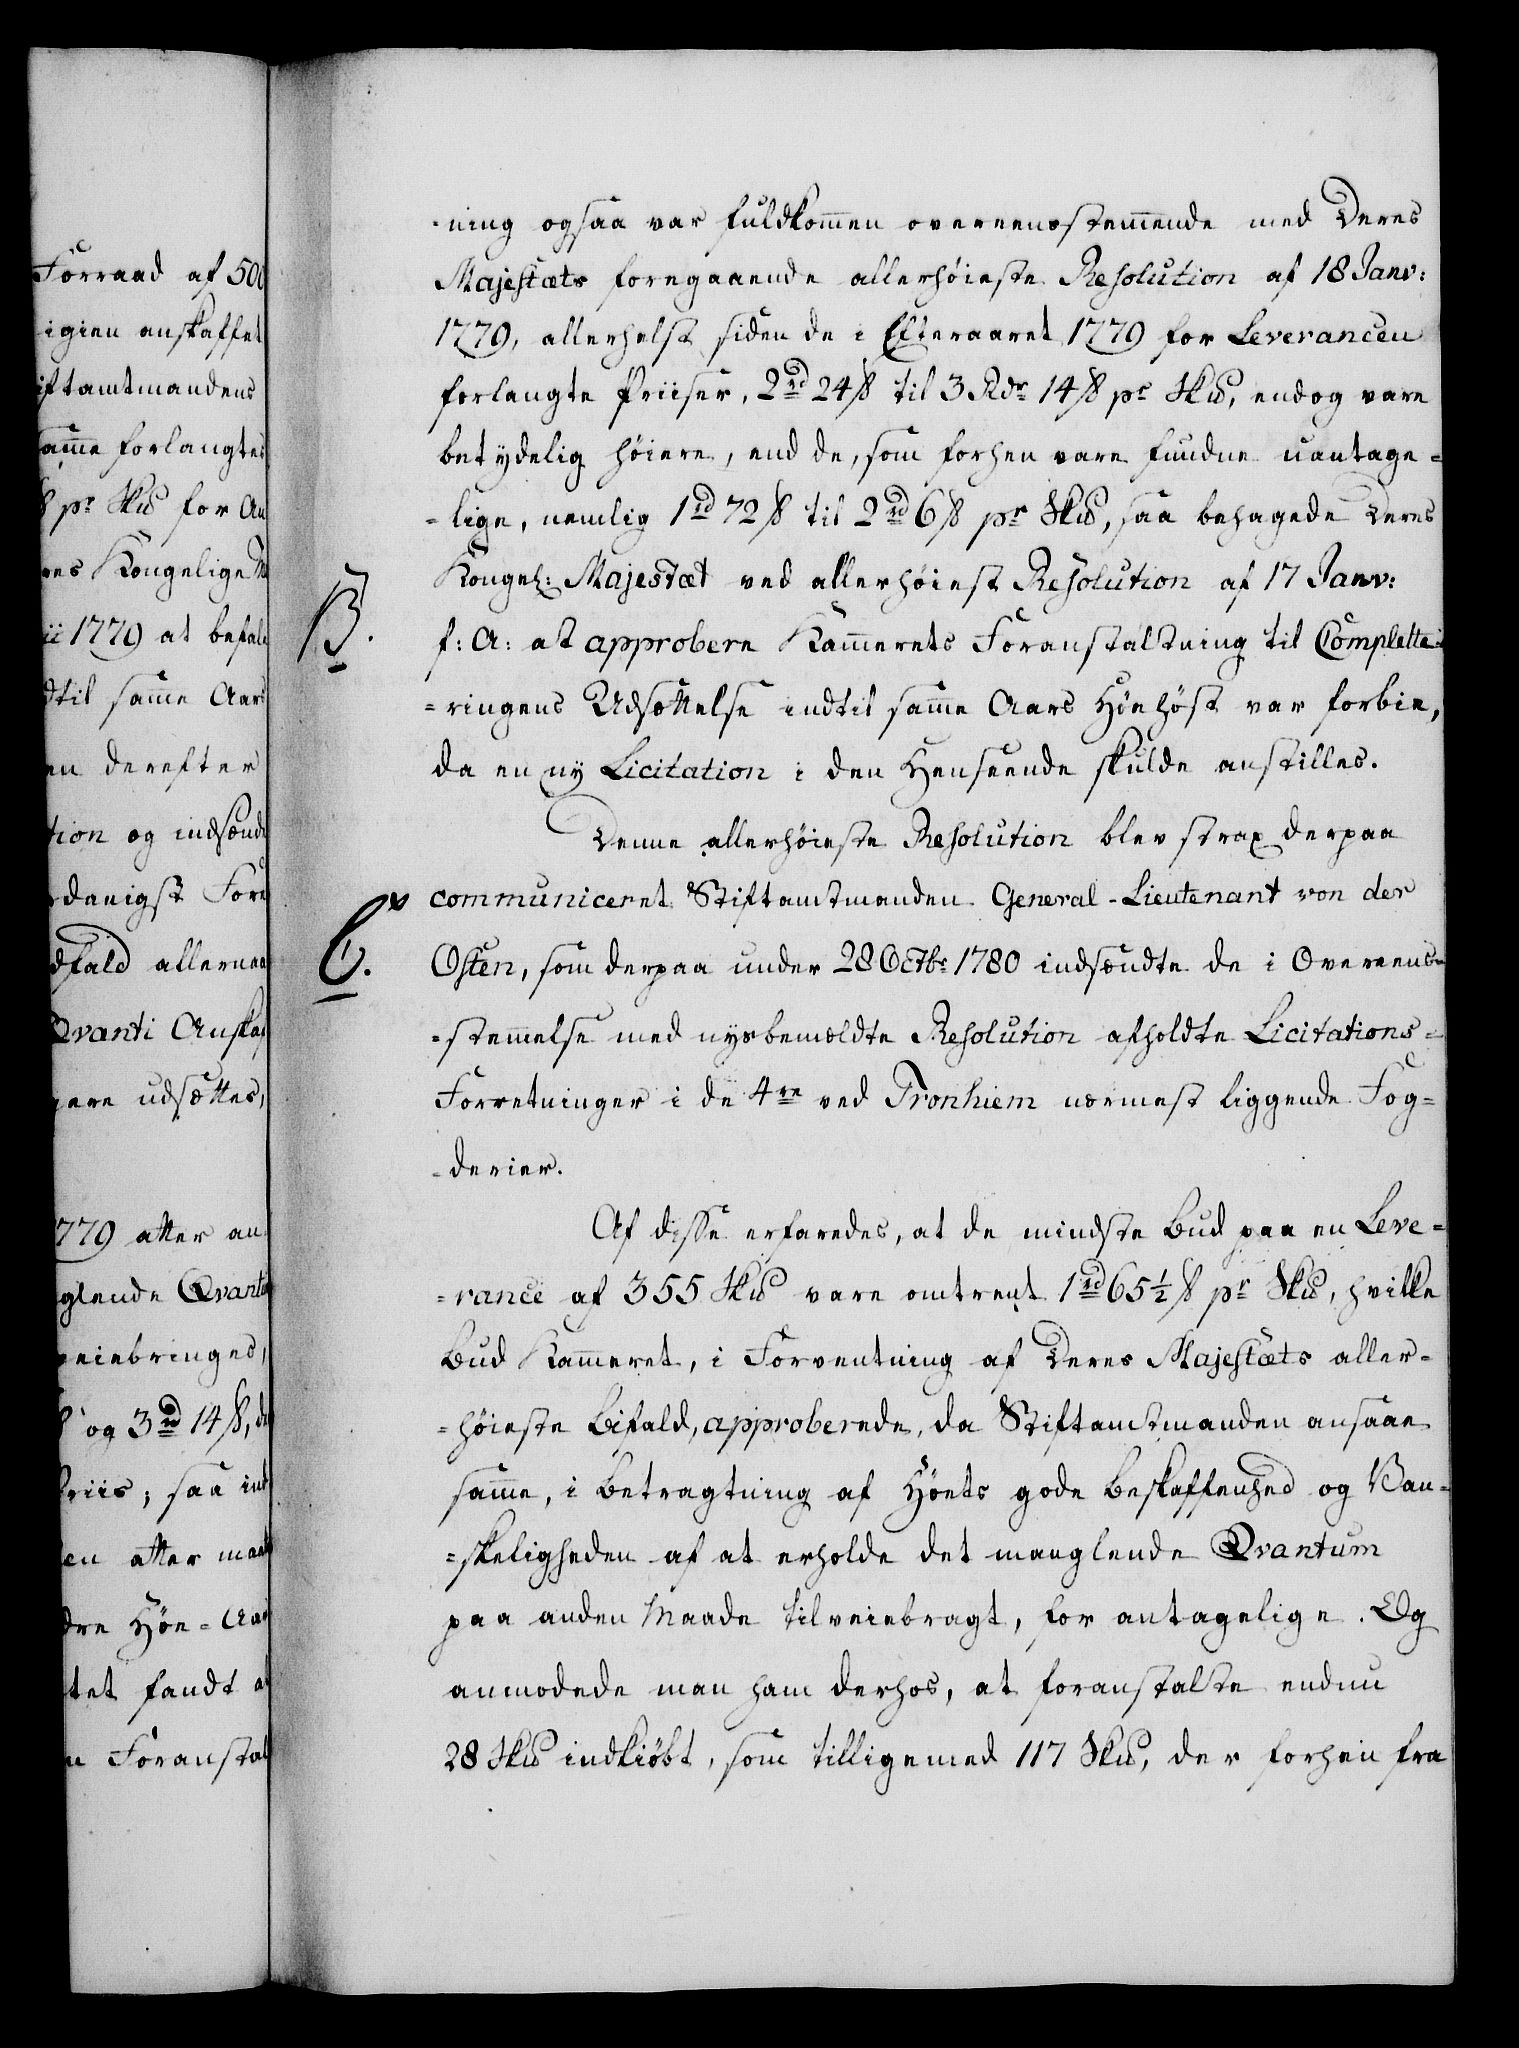 Forraad af 500
igien anskaffet
iftamtmandens
samme forlangtes
ß pr Skd for
res Kongelige
ii 1779 at befale
dtil samme Aars
en derefter
tion og indsænde
rdanigst Fore
dfald allernaa
Qvanti Anskaf
gere udsættes,
779 atter an
glende Qvanti
veiebringes,
ß og 3rd 14ß, de
Priis; saa ind
en atter maat
dre Höe-Aar
tet fandt at
n Foranstal
-ning ogsaa var fuldkommen overeensstemmende med Deres
Majestæts foregaaende allerhöieste Resolution af 18 Janv:
1779, allerhelst siden de i Efteraaret 1779 for Leverancen
forlangte Priiser, 2rd 24ß til 3 Rdr 14ß pr Skd, endog vare
betydelig höiere, end de, som forhen vare fundne uantage=
=lige, nemlig 1rd 72ß til 2rd 6ß pr Skd, saa behagede Deres
Kongel: Majestæt ved allerhöiest Resolution af 17 Janv:
B.
f: A: at approbere Kammerets Foranstaltning til Complette=
=ringens Udsættelse indtil samme Aars Höehöst var forbie,
da en ny Licitation i den Henseende skulde anstilles.
Denne allerhöieste Resolution blev strax derpaa
communiceret Stiftamtmanden General-Lieutenant von der
C.
Osten, som derpaa under 28 Octbr 1780 indsendte de i Overeens=
=stemmelse med nysbemældte Resolution afholdte Licitations=
Forretninger i de 4re ved Tronhiem nærmest liggende Fog=
=derier.
Af disse erfaredes, at de mindste Bud paa en Leve=
=rance af 355 Skd vare omtrent 1rd 65½ß pr Skd, hvilke
Bud Kammeret, i Forventning af Deres Majestæts aller=
=höieste Bifald, approberede, da Stiftamtmanden ansaae
samme, i Betragtning af Höets gode Beskaffenhed og Van=
=skeligheden af at erholde det manglende Qvantum
paa anden Maade tilveiebragt, for antagelige. Og
anmodede man ham derhos, at foranstalte endnu
28 Skd indkiöbt, som tilligemed 117 Skd, der forhen fra